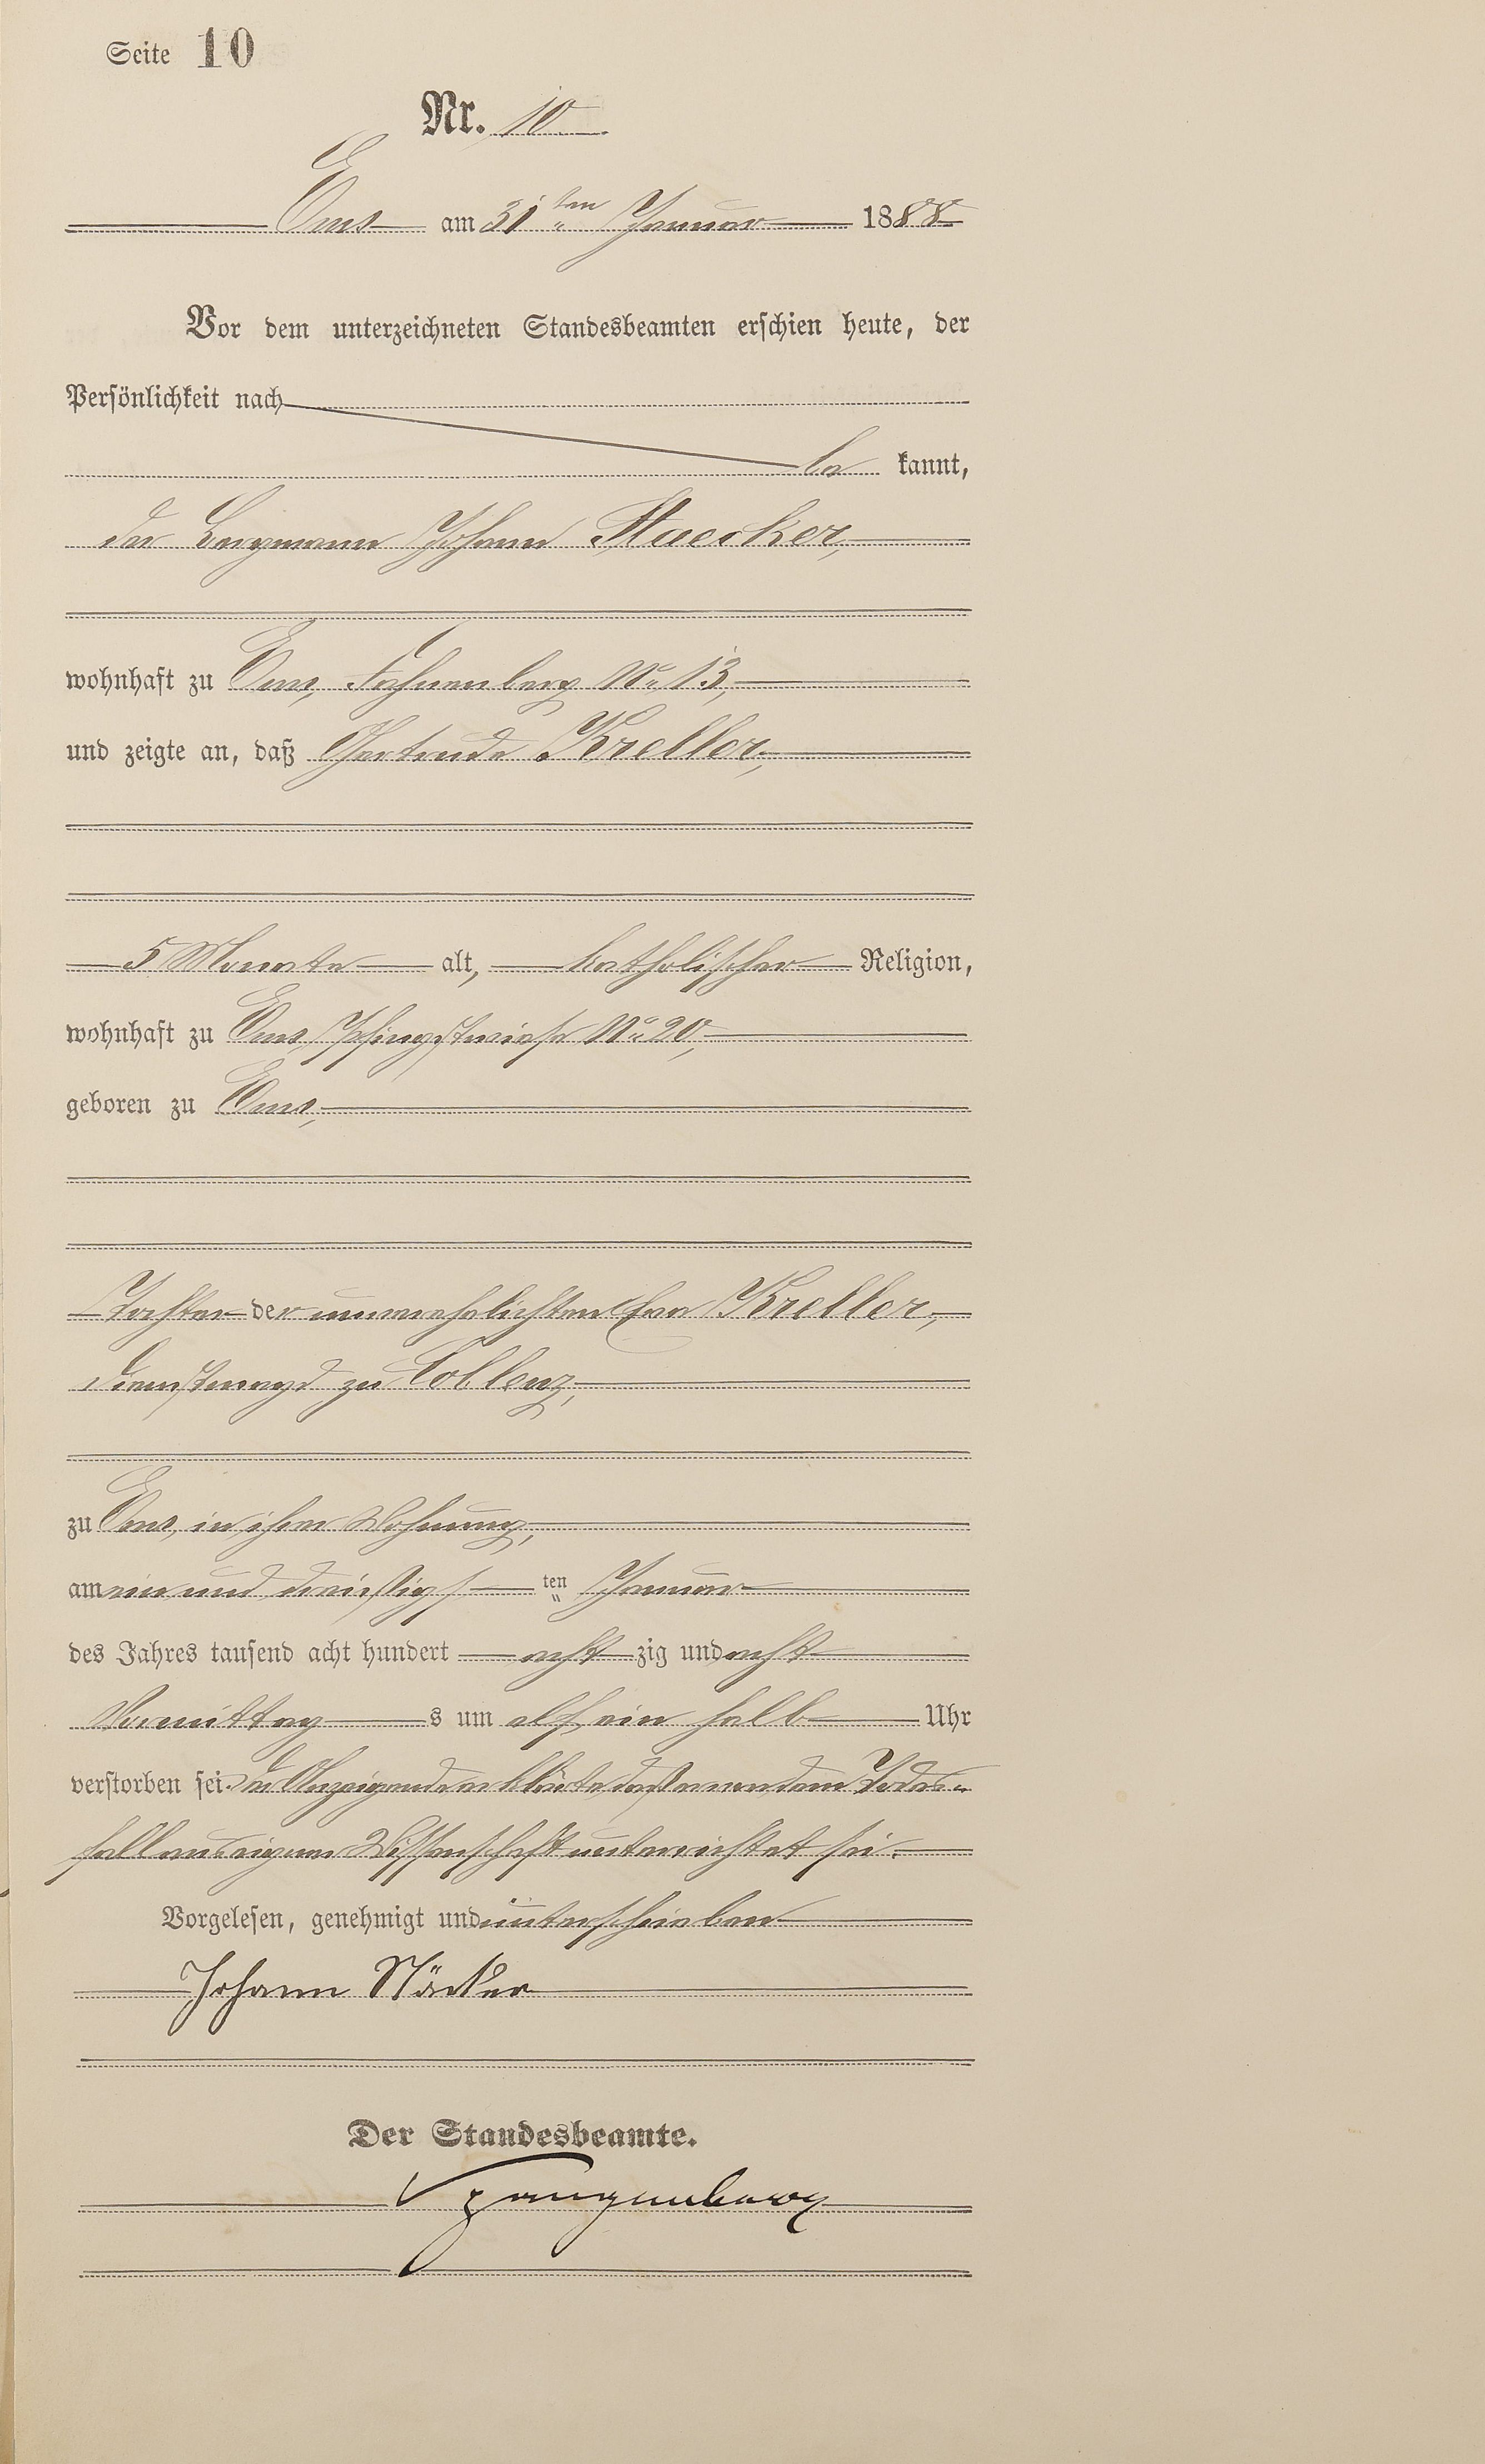 Seite 10
Nr. 10
Ems am 31ten Januar 1888
Vor dem unterzeichneten Standesbeamten erschien heute, der
Persönlichkeit nach
be kannt,
der Bergmann Johann Staecker,
wohnhaft zu Ems, Fahnenberg No 13,
und zeigte an, daß Gertrude Kreller,
5 Monate alt, katholischer Religion,
wohnhaft zu Ems, Pfingstwiese No 20,
geboren zu Ems,
Tochter der unverehelichten Eva Kreller,
Dienstmagd zu Coblenz,
zu Ems, in ihrer Wohnung,
am ein und dreißigsten Januar
des Jahres tausend acht hundert acht zig und acht
Vormittag s um elf ein halb Uhr
verstorben sei. Der Anzeigende erklärte, daß er von dem Todes-
fall aus eigener Wissenschaft unterrichtet sei.
Vorgelesen, genehmigt und unterschrieben
Johann Stäcker
Der Standesbeamte.